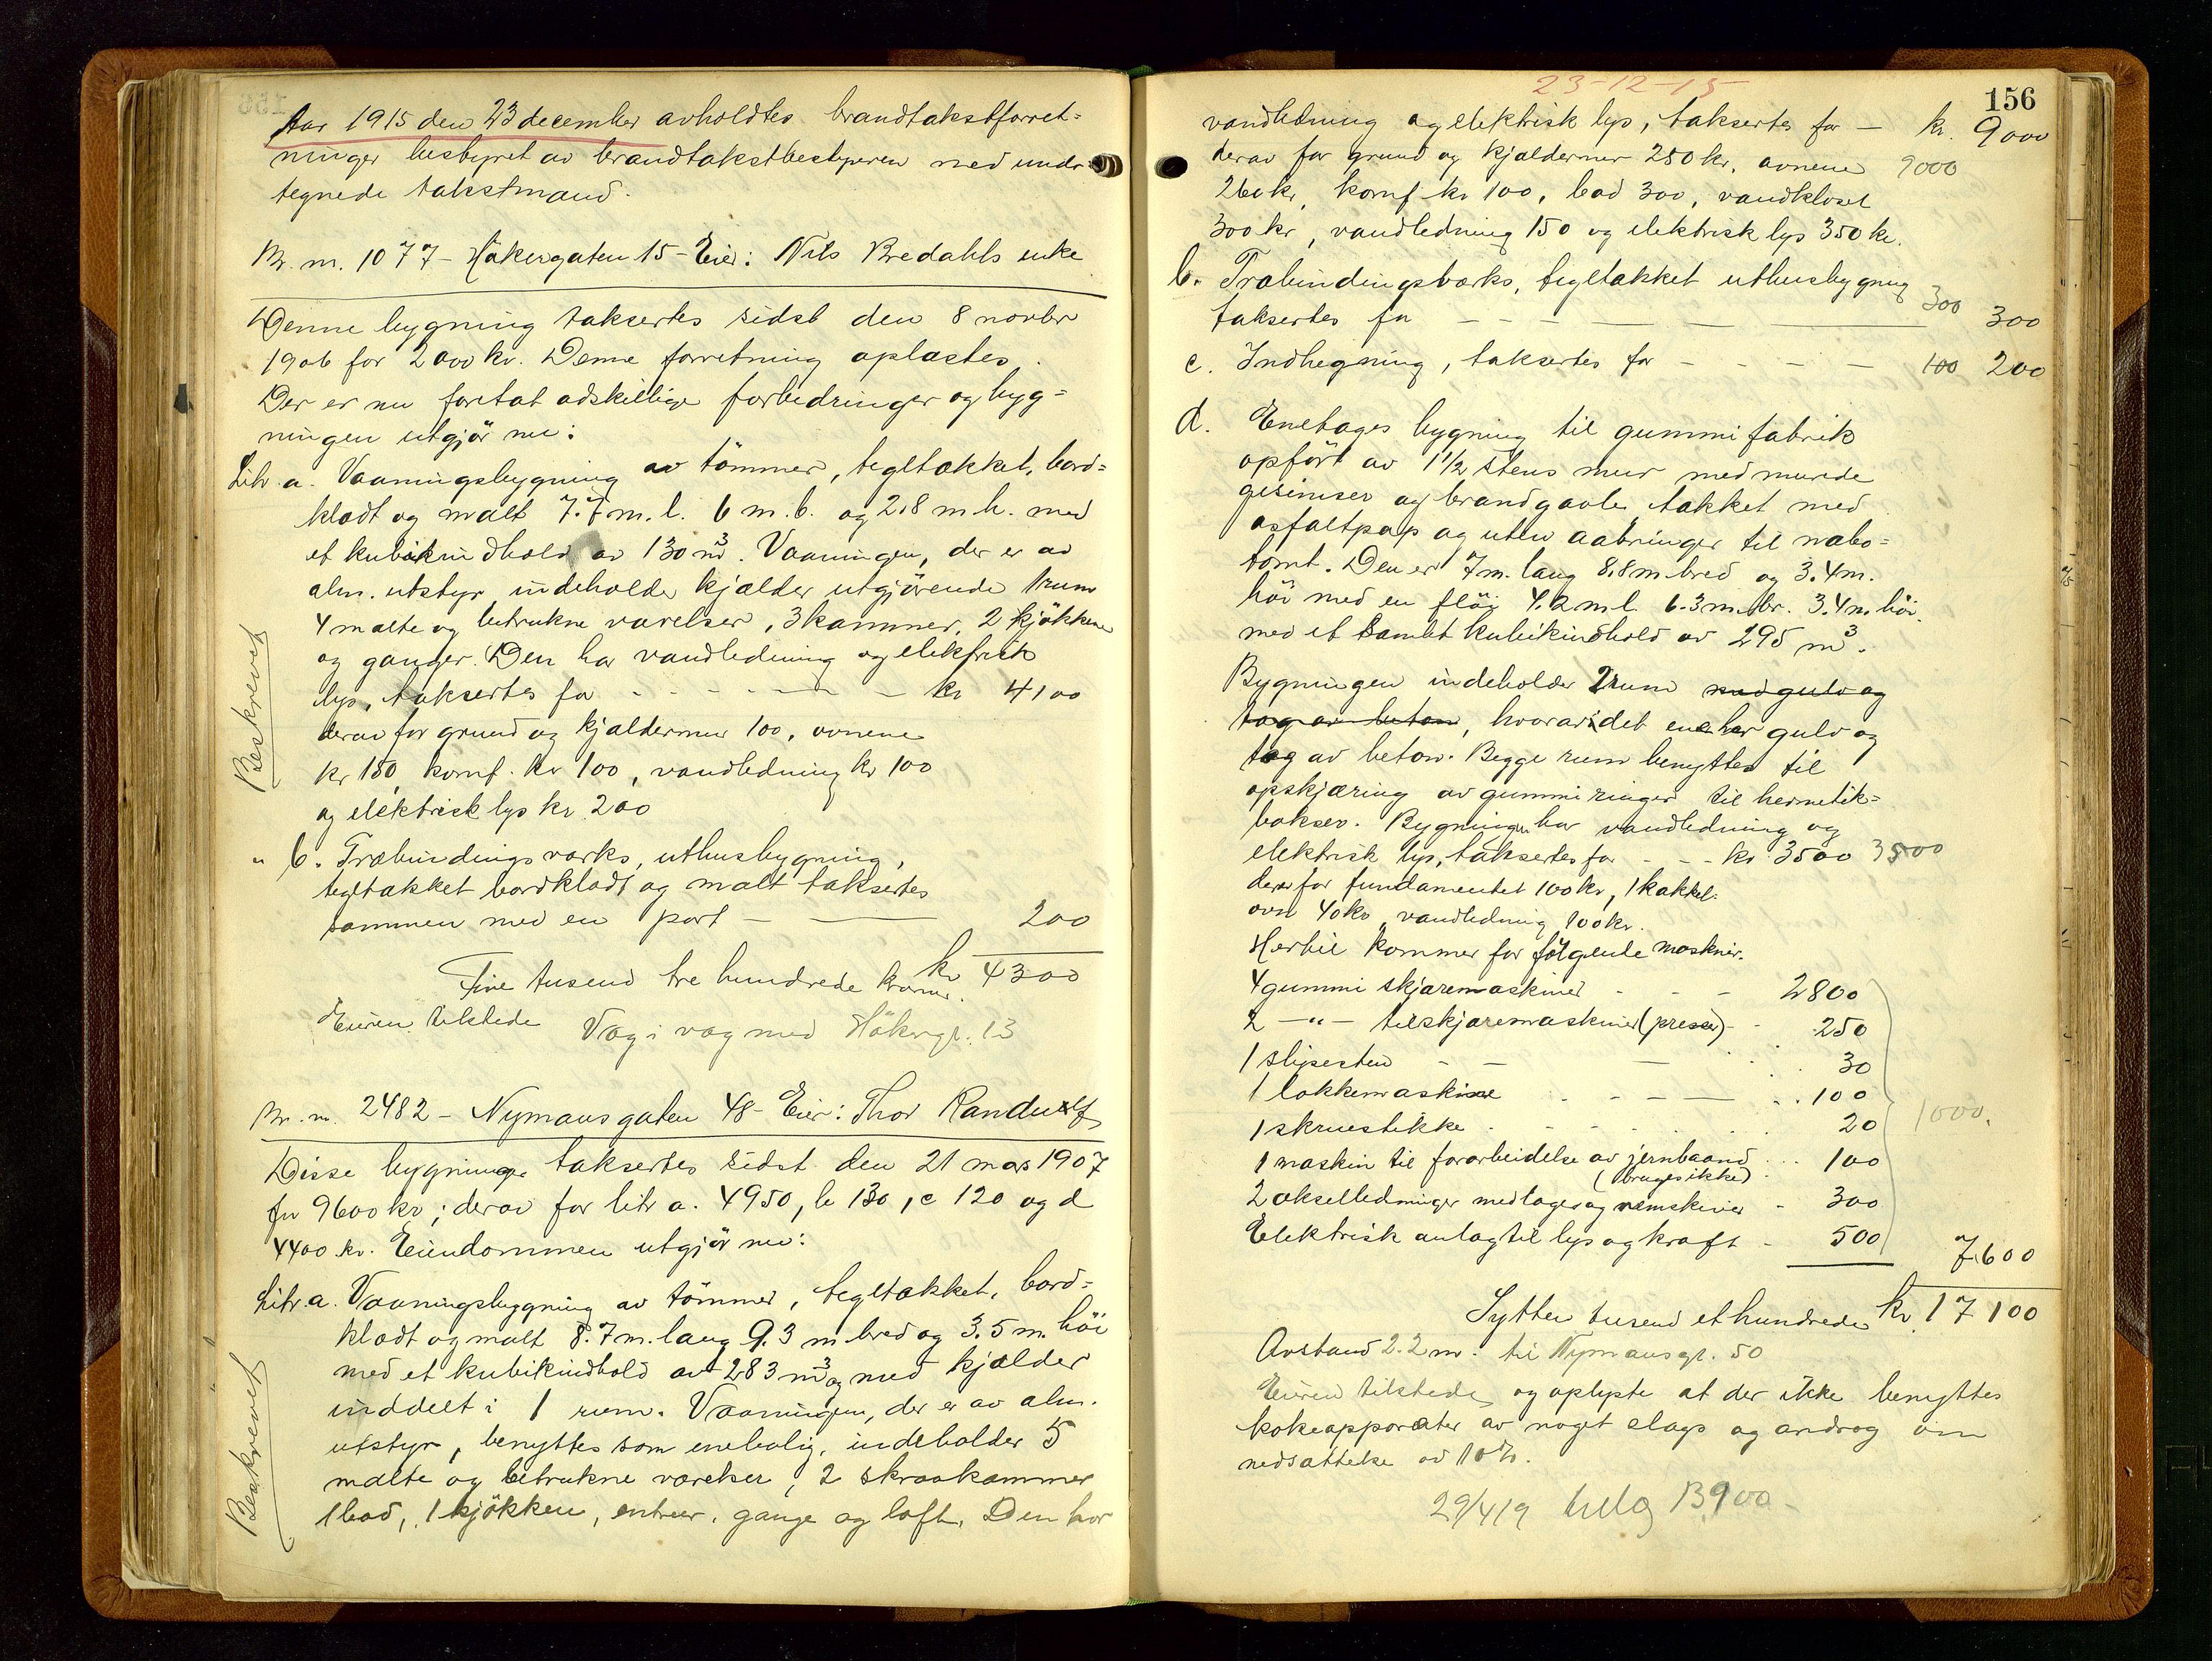 Aar 1915 den 23 december avholdtes brandtakstforret-
ninger bestyret av brandtakstbestyreren med under-
tegnede takstmænd.
Br. nr. 1077 - Hökergaten 15 - Eier: Nils Bredahls enke
Denne bygning taksertes sidst den 8 novbr
1906 for 2000 kr. Denne forretning oplæstes.
Der er nu foretat adskillige forbedringer og byg=
ningen utgjör nu:
Litr. a. Vaaningsbygning av tömmer, tegltækket, bord=
klædt og malt 7.7 m. l. 6 m. b. og 2.8 m h. med
et kubikindhold av 130 m³. Vaaningen, der er av
alm. utstyr indeholder kjælder utgjörende 1 rum
4 malte og betrukne værelser, 3 kammer, 2 kjökkener
og ganger. Den har vandledning og elektrisk
lys, taksertes for - - - - - - kr 4100
derav for grund og kjældermur 100, ovnene
kr 150, komf. kr 100, vandledning kr 100
og elektrisk lys kr. 200
Beskrevet
" b. Træbindingsværks, uthusbygning,
tegltækket bordklædt og malt taksertes
sammen med en port - —— 200
Fire tusend tre hundrede kroner. kr 4300
Eieren tilstede Væg i væg med Hökergt. 13
Br. nr. 2482 - Nymansgaten 48 - Eier: Thor Randulf
Disse bygninger taksertes sidst den 21 mars 1907
for 9600 kr; derav for litr a. 4950, b 130, c 120 og d
4400 kr. Eiendommen utgjör nu:
Litr. a. Vaaningsbygning av tömmer, tegltækket, bord=
klædt og malt 8.7 m. lang 9.3 m bred og 3.5 m. höi
med et kubikindhold av 283 m³ og med kjælder
inddelt i 1 rum. Vaaningen, der er av alm.
utstyr, benyttes som enebolig, indeholder 5
malte og betrukne værelser, 2 skraakammer
1 bad, 1 kjökken, entreer, gange og loft. Den har
Beskrevet
23-12-15
156
vandledning og elektrisk lys, taksertes for — kr. 9000
derav for grund og kjældermur 250 kr. ovnene 9000
260 kr, komf kr 100, bad 300, vandkloset
300 kr, vandledning 150 og elektrisk lys 350 kr.
b. Træbindingsværks, tegltækket uthusbygning
taksertes for - - - — — 300 300
c. Indhegning, taksertes for - - - — 100 200
d. Enetages bygning til gummifabrik
opfört av 1½ stens mur med murede
gesimser og brandgavle, tækket med
asfaltpap og uten aabninger til nabo=
tomt. Den er 7 m. lang 8.8 m bred og 3.4 m.
höi med en flöi 4.2 m l. 6.3 m. br. 3.4 m. höi.
med et samlet kubikindhold av 295 m³.
Bygningen indeholder 2 rum med gulv og
tag av beton, hvorav det ene har gulv og
tag av beton. Begge rum benyttes til
opskjæring av gummiringer til hermetik=
bokser. Bygningen har vandledning og
elektrisk lys, taksertes for - - - kr. 3500 3500
derav for fundamentet 100 kr, 1 kakkel-
ovn 40 kr, vandledning 100 kr.
Hertil kommer for fölgende maskiner.
4 gummi skjæremaskiner - - - 2800
2 - " - tilskjæremaskiner (presser) - 250
1 slipesten - - — 30
1 lokkemaskine - - - — 100
1 skruestikke - - - 20
1 maskin til forarbeidelse av jernbaand ... 100
(bruges ikke)
2 akselledninger med lager og remskiver - 300
Elektrisk anlæg til lys og kraft - 500
1000.
7600
Sytten tusend et hundrede kr. 17100
Avstand 2.2 m. til Nymansgt. 50
Eieren tilstede og oplyste at der ikke benyttes
kokeapparater av noget slags og androg om
nedsættelse av 10%.
29/4 19 B 900 -